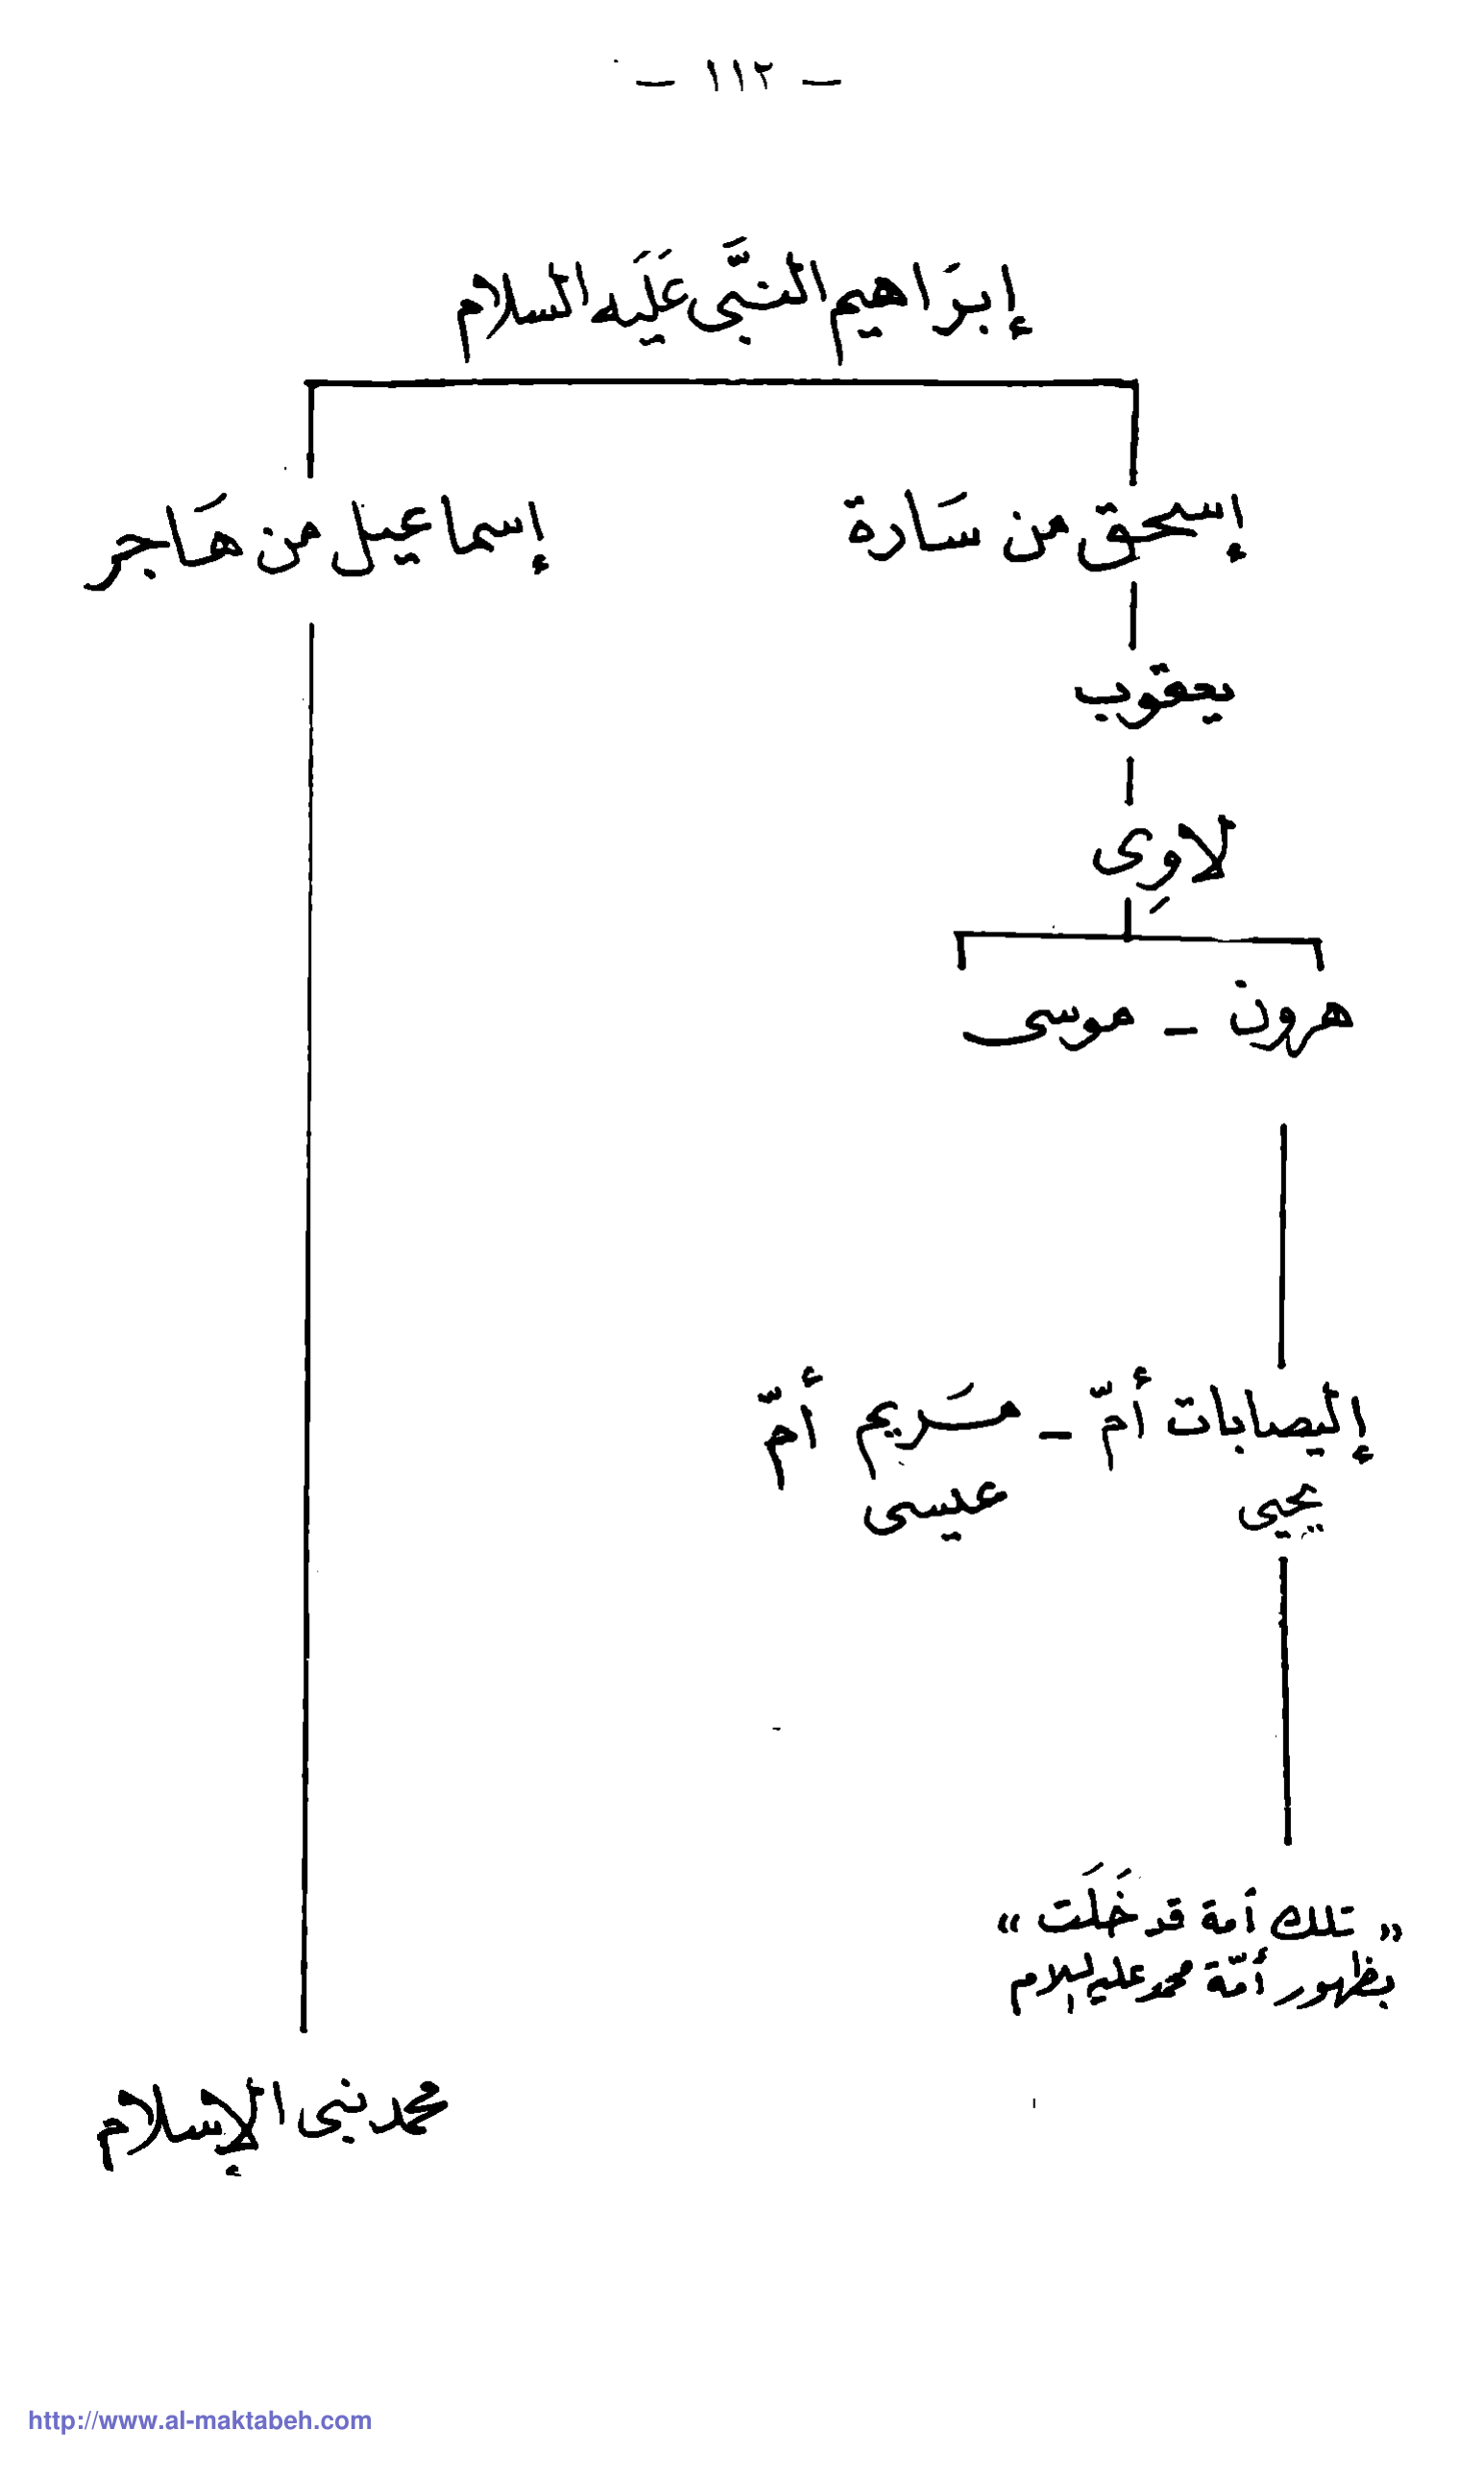 - ١١٢ -
إبرَاهيم النبَّى عَلَيَه السلام
إسحق من سَارة
إسماعيل من هَاجر
يعقوب
لاوِى
هرون - موسى
إليصابات أمّ - مسَريم أمّ
يحيى
عيسى
« تلك أمة قد خَلَت »
بظهور أمّة محمد عليه السلام
محمد نبى الإسلام
http://www.al-maktabeh.com